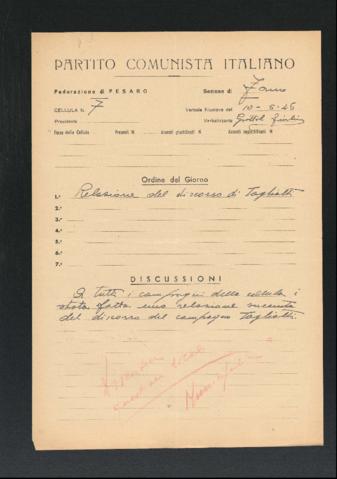 PARTITO COMUNISTA ITALIANO
Federazione di PESARO Sezione di Fano
CELLULA N. 7 Verbale Riunione del 10-5-45
Presidente Verbalizzante
Forza della Cellula Presenti N. Assenti giustificati N. Assenti ingiustificati N.
Ordine del Giorno
1.° Relazione del discorso di Togliatti
2.°
3.°
4.°
5.°
6.°
7.°
DISCUSSIONI
A tutti i compagni della cellula è
stata fatta una relazione
del discorso del compagno Togliatti.